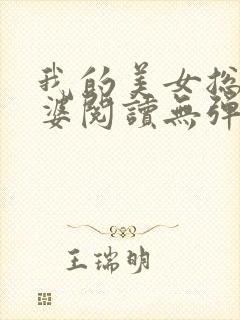 我的美女総
婆閱讀無彈
王瑞明